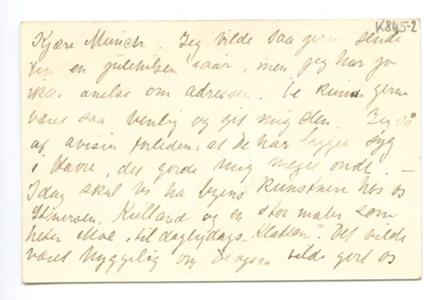 K845-2
Kjære Munch. Jeg vilde saa gerne sende
Dem en julehilsen iaar, men jeg har jo
ikke anelse om adressen. De kunde gerne
være saa venlig og gi mig den. Jeg så
af avisen forleden, at De har ligget syg
i Havre, det gjorde mig meget ondt. —
Idag skal vi ha byens kunstnere hos os
Stinersen, Kielland og en stor maler som
heter Moe, til daglydags "Klatten". Det vilde
været hyggelig om De også vilde gjort os